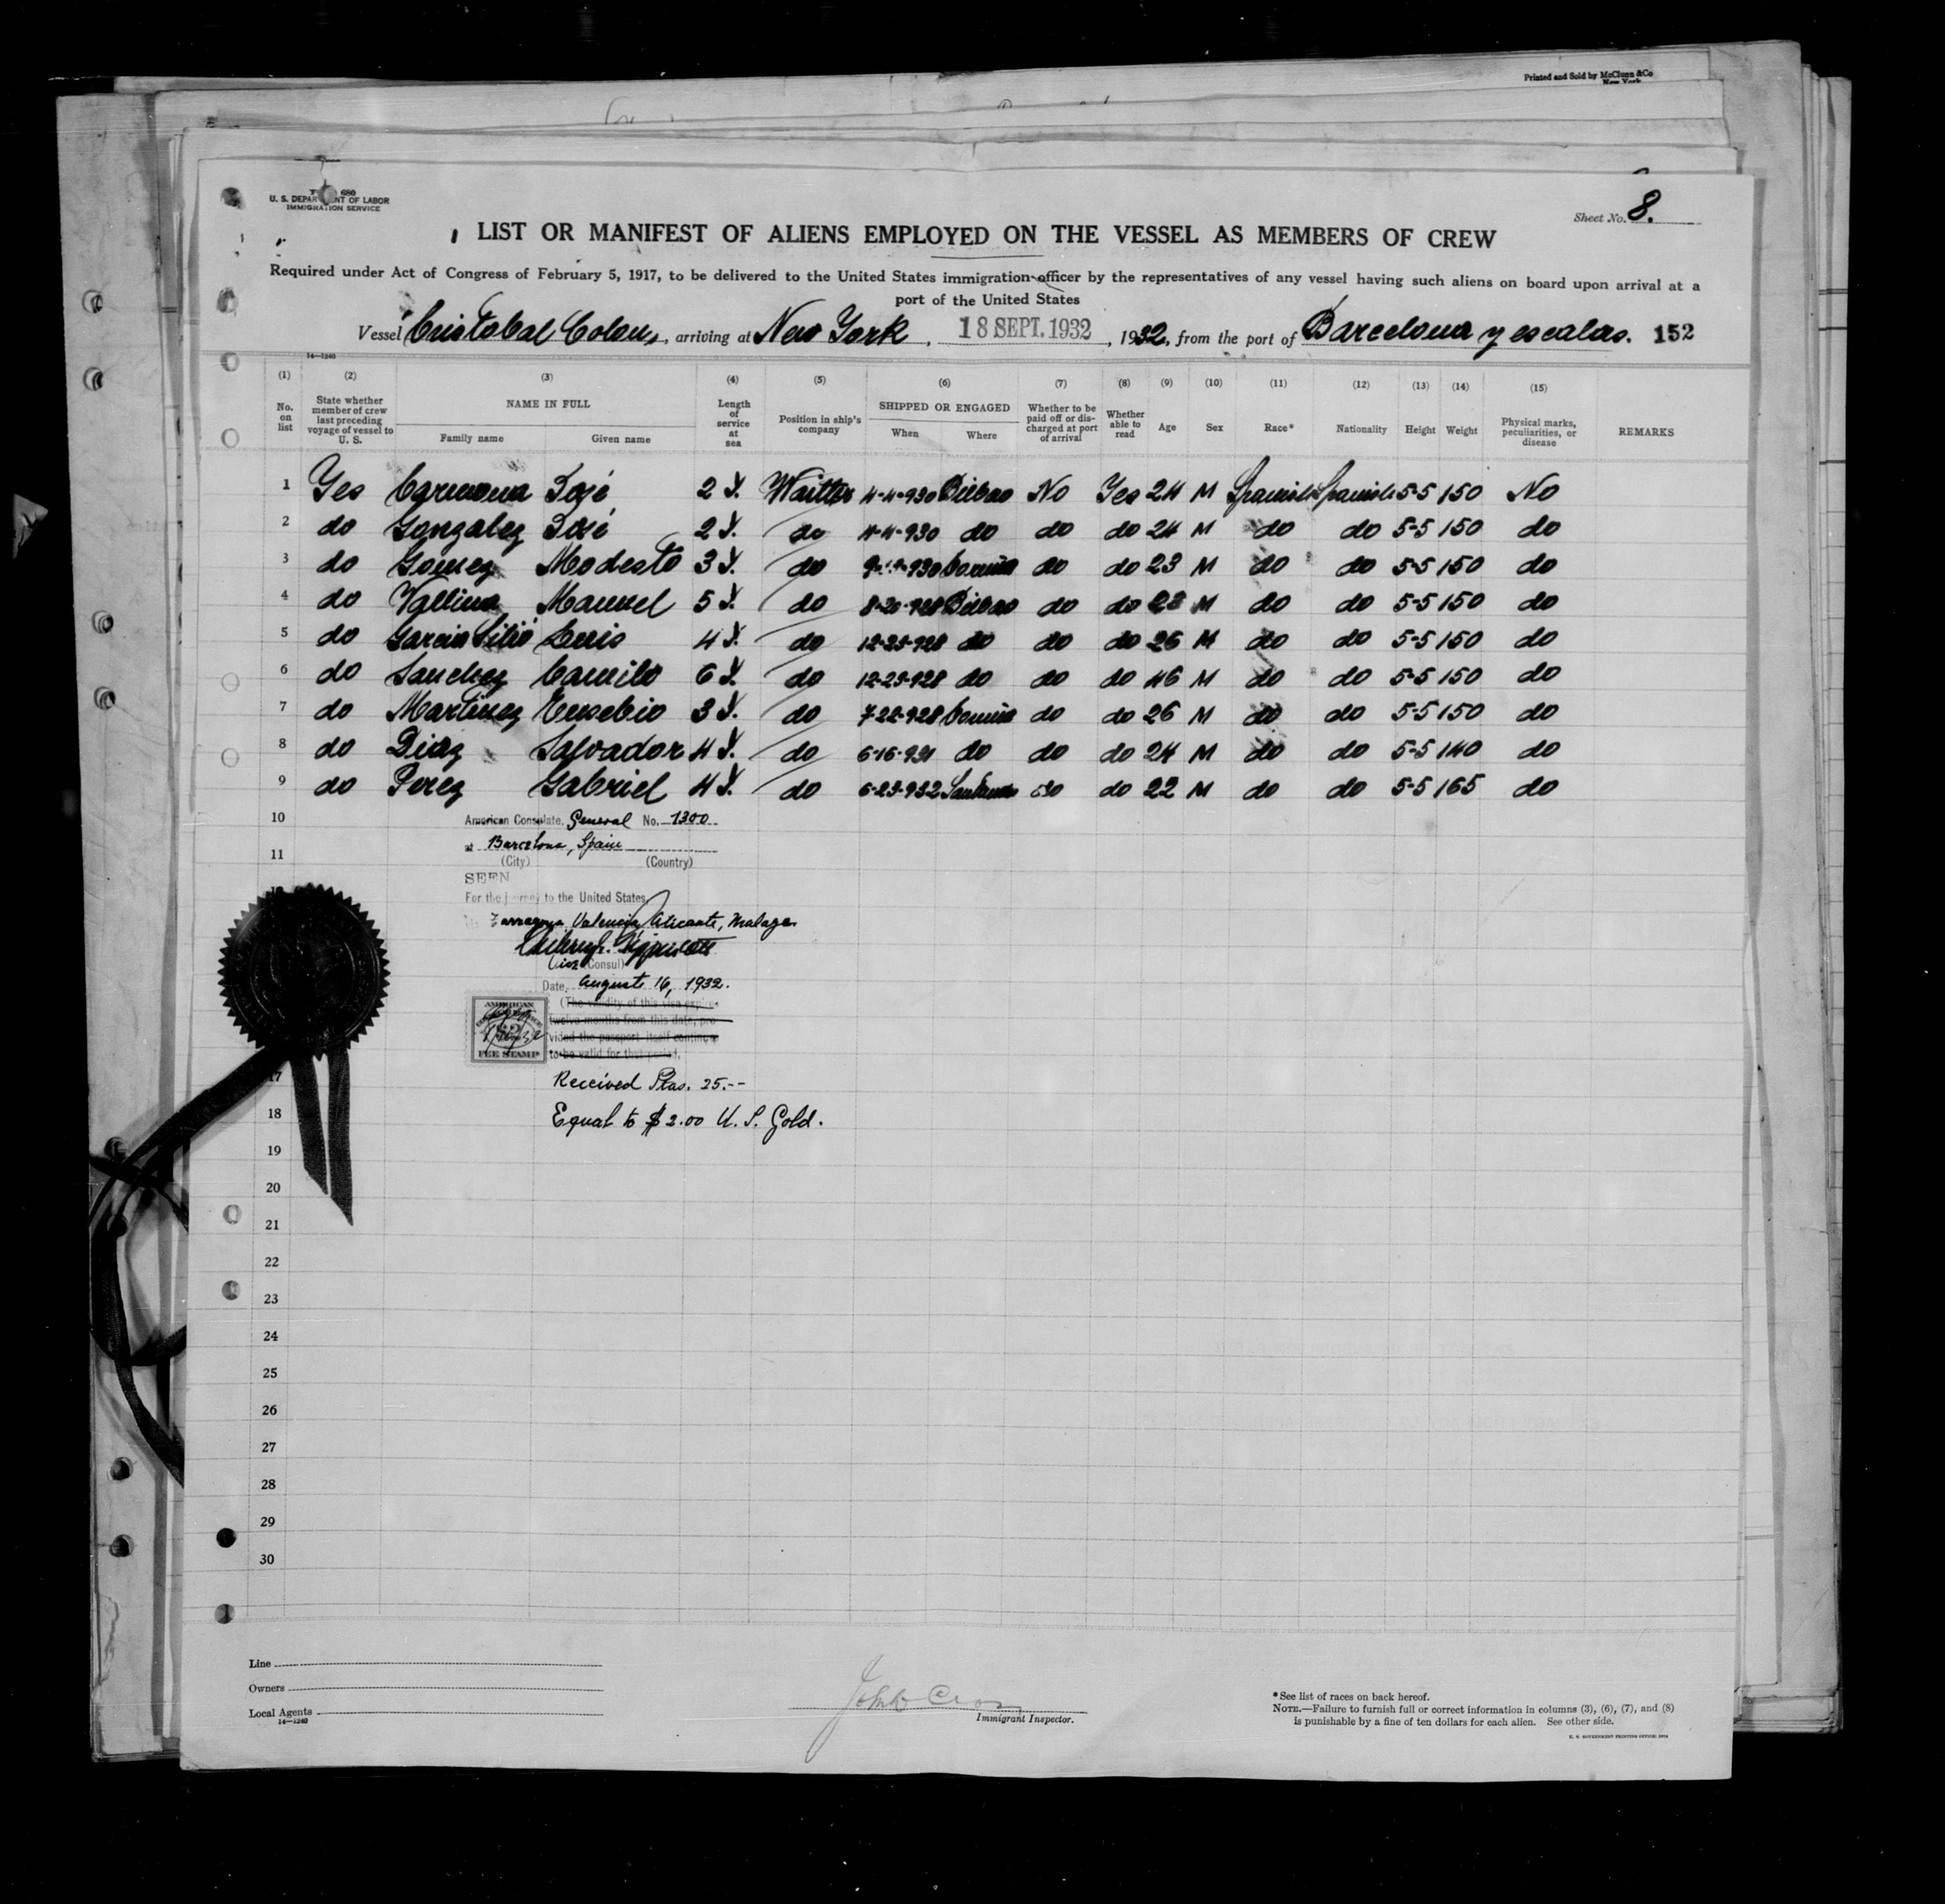 Printed and Sold by McClunn & Co
New York
680
U. S. DEPARTMENT OF LABOR
IMMIGRATION SERVICE
Sheet No. 8.
LIST OR MANIFEST OF ALIENS EMPLOYED ON THE VESSEL AS MEMBERS OF CREW
Required under Act of Congress of February 5, 1917, to be delivered to the United States immigration officer by the representatives of any vessel having such aliens on board upon arrival at a
port of the United States
Vessel Cristobal Colon, arriving at New York, 18 SEPT. 1932, 1932, from the port of Barcelona y escalas. 152
14—1240
(1) (2) (3) (4) (5) (6) (7) (8) (9) (10) (11) (12) (13) (14) (15)
No. on list State whether member of crew last preceding voyage of vessel to U. S. NAME IN FULL Family name Given name Length of service at sea Position in ship's company SHIPPED OR ENGAGED When Where Whether to be paid off or discharged at port of arrival Whether able to read Age Sex Race* Nationality Height Weight Physical marks, peculiarities, or disease REMARKS
1 Yes Carmona José 2 Y. Waitter 4-4-930 Bilbao No Yes 24 M Spanish Spanish 5-5 150 No
2 do Gonzalez José 2 Y. do 4-4-930 do do do 24 M do do 5-5 150 do
3 do Gomez Modesto 3 Y. do Coruña do do 23 M do do 5-5 150 do
4 do Vallina Manuel 5 Y. do 8-20-928 Bilbao do do M do do 5-5 150 do
5 do Garcia Luis 4 Y. do 12-23-928 do do do 26 M do do 5-5 150 do
6 do Sanchez Camilo 6 Y. do 12-23-928 do do do 46 M do do 5-5 150 do
7 do Martinez Eusebio 3 Y. do 7-22-928 Coruña do do 26 M do do 5-5 150 do
8 do Diaz Salvador 4 Y. do 6-16-931 do do do 24 M do do 5-5 140 do
9 do Perez Gabriel 4 Y. do 6-23-932 Santander do do 22 M do do 5-5 165 do
10 American Consulate General No. 1300
at Barcelona, Spain
11 (City) (Country)
SEEN
For the journey to the United States
Tarragona, Valencia, Alicante, Malaga
Vice (Consul)
Date, August 16, 1932.
(The validity of this visa expires
twelve months from this date, pro-
vided the passport itself continues
to be valid for that period.
AMERICAN
FEE STAMP
17 Received Ptas. 25.--
18 Equal to $ 2.00 U. S. Gold.
19
20
21
22
23
24
25
26
27
28
29
30
Line
Owners
Local Agents
14—1240
Immigrant Inspector.
*See list of races on back hereof.
NOTE.—Failure to furnish full or correct information in columns (3), (6), (7), and (8)
is punishable by a fine of ten dollars for each alien. See other side.